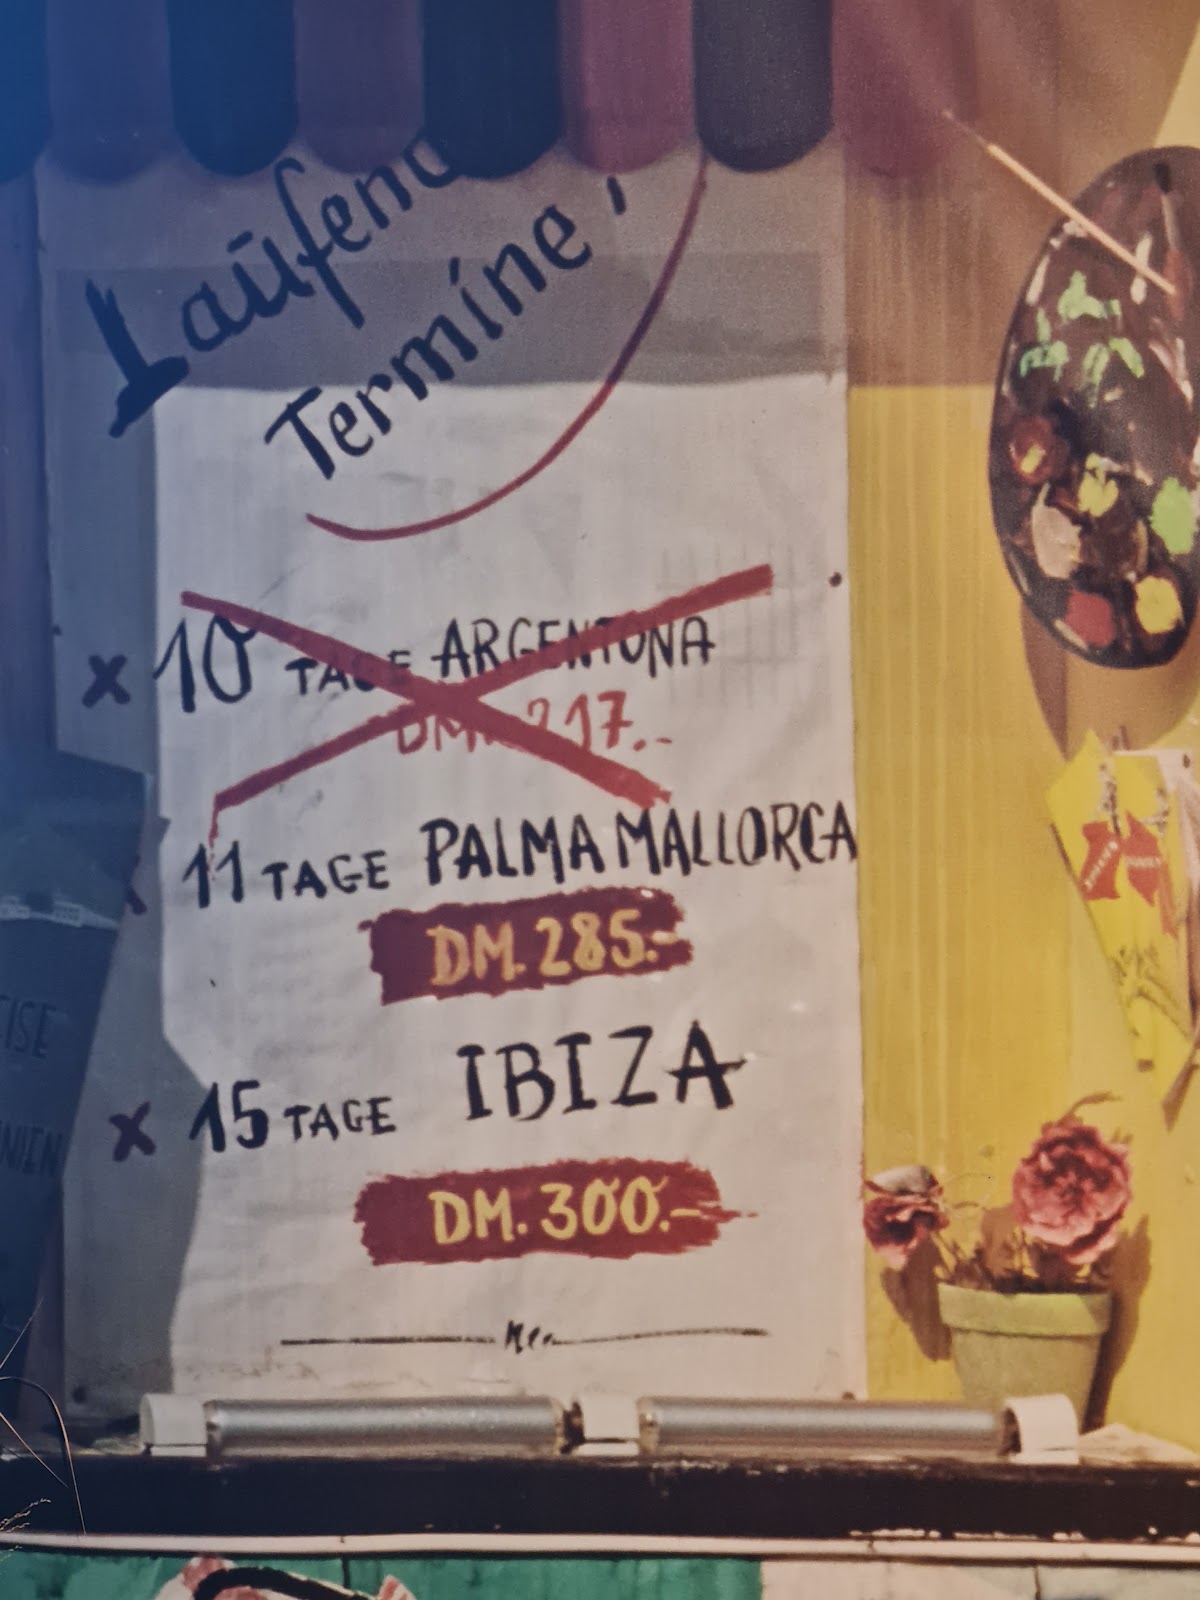 Laufend
Termine,
x 10 TAGE ARGENTONA
DM. 217.-
11 TAGE PALMA MALLORCA
DM. 285.-
x 15 TAGE IBIZA
DM. 300.-